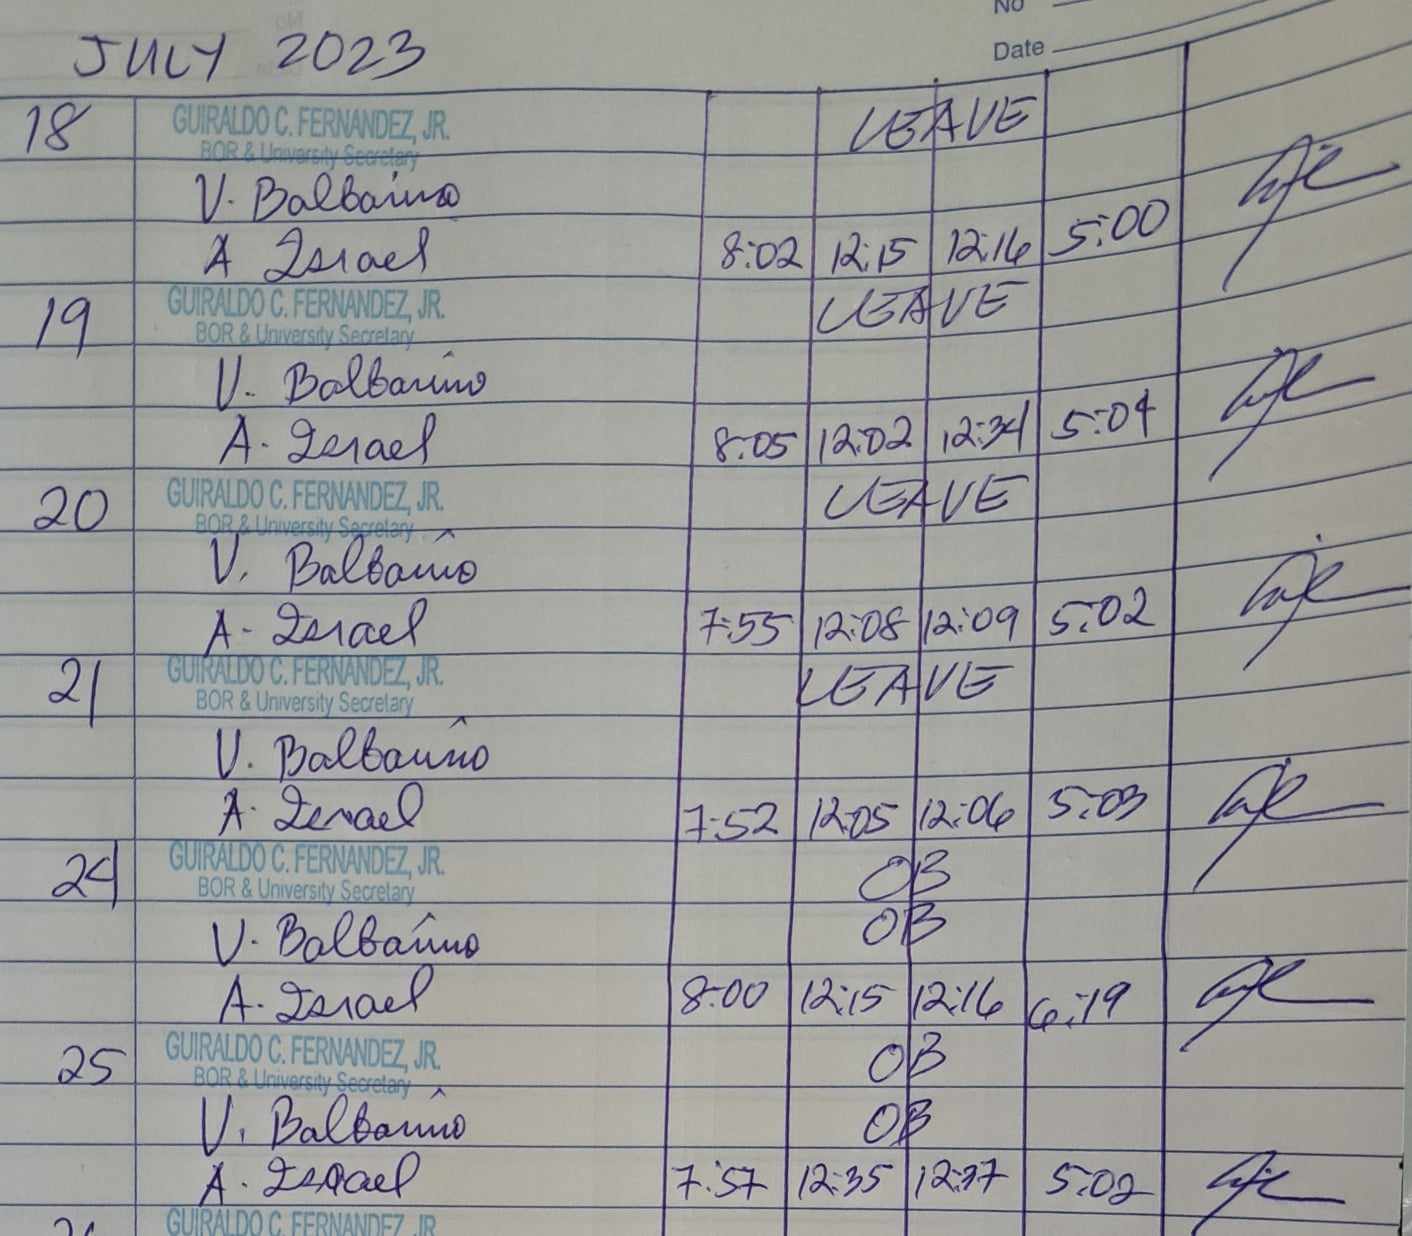 No
Date
JULY 2023
18 GUIRALDO C. FERNANDEZ, JR. LEAVE
BOR & University Secretary
V. Balbarino
A Israel 8:02 12:15 12:16 5:00
19 GUIRALDO C. FERNANDEZ, JR. LEAVE
BOR & University Secretary
V. Balbarino
A. Israel 8:05 12:02 12:34 5:04
20 GUIRALDO C. FERNANDEZ, JR. LEAVE
BOR & University Secretary
V. Balbarino
A. Israel 7:55 12:08 12:09 5:02
21 GUIRALDO C. FERNANDEZ, JR. LEAVE
BOR & University Secretary
V. Balbarino
A. Israel 7:52 12:05 12:06 5:03
24 GUIRALDO C. FERNANDEZ, JR. OB
BOR & University Secretary
V. Balbarino OB
A. Israel 8:00 12:15 12:16 6:19
25 GUIRALDO C. FERNANDEZ, JR. OB
BOR & University Secretary
V. Balbarino OB
A. Israel 7:57 12:35 12:37 5:02
GUIRALDO C. FERNANDEZ, JR.